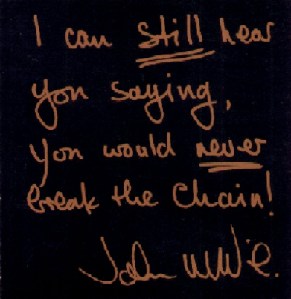 I can still hear
you saying,
you would never
break the Chain!
John